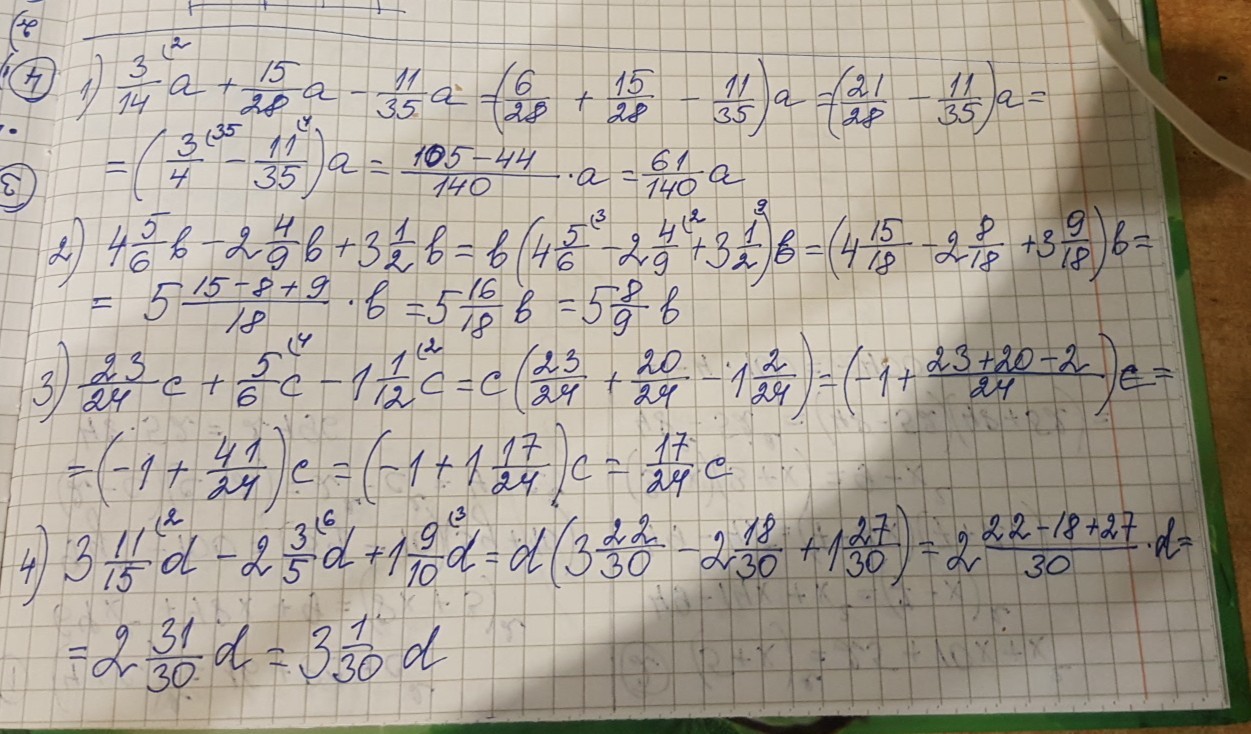 4) 1) 3/14 a + 15/28 a − 11/35 a = (6/28 + 15/28 − 11/35)a = (21/28 − 11/35)a =
= (3/4 − 11/35)a = (105−44)/140 · a = 61/140 a
2) 4 5/6 в − 2 4/9 в + 3 1/2 в = в(4 5/6 − 2 4/9 + 3 1/2)в = (4 15/18 − 2 8/18 + 3 9/18)в =
= 5 (15−8+9)/18 · в = 5 16/18 в = 5 8/9 в
3) 23/24 c + 5/6 c − 1 1/12 c = c(23/24 + 20/24 − 1 2/24) = (−1 + (23+20−2)/24)c =
= (−1 + 41/24)c = (−1 + 1 17/24)c = 17/24 c
4) 3 11/15 d − 2 3/5 d + 1 9/10 d = d(3 22/30 − 2 18/30 + 1 27/30) = 2 (22−18+27)/30 · d =
= 2 31/30 d = 3 1/30 d